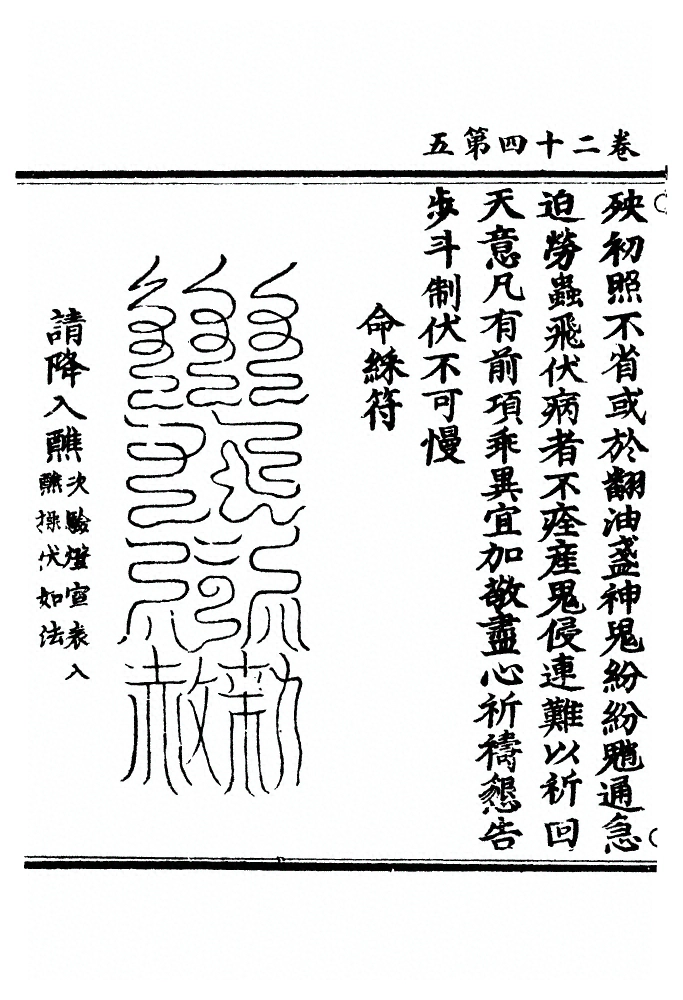 卷二十四第五
殃初照不省或於翻油盞神鬼紛紛魈通急
迫勞蟲飛伏病者不痊產鬼侵連難以祈回
天意凡有前項乖異宜加敬盡心祈禱懇告
步斗制伏不可慢
命綵符
敕赦
請降入醮
次驗燈宣表入
醮探伏如法